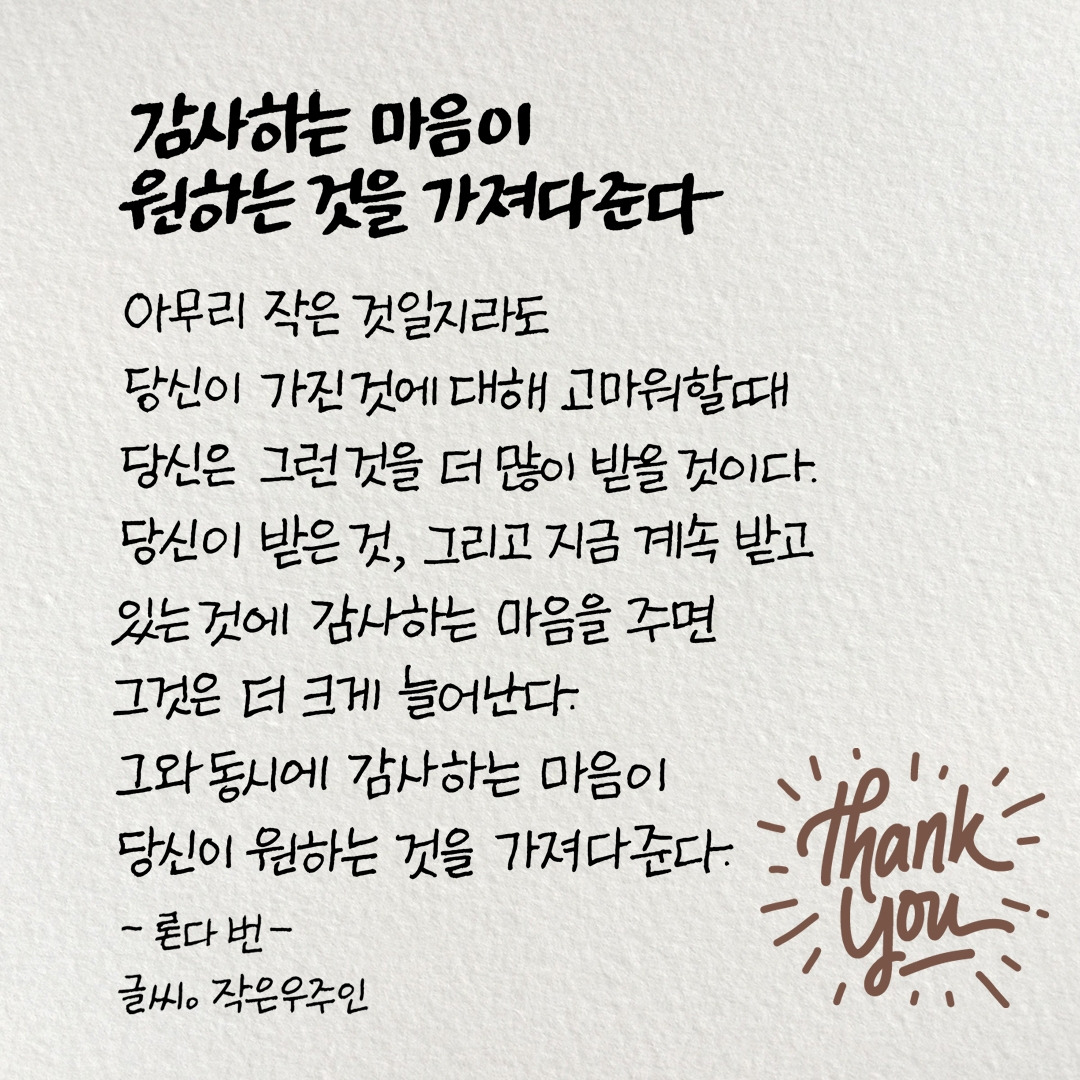 감사하는 마음이
원하는 것을 가져다준다
아무리 작은 것일지라도
당신이 가진것에 대해 고마워할때
당신은 그런것을 더 많이 받을 것이다.
당신이 받은 것, 그리고 지금 계속 받고
있는것에 감사하는 마음을 주면
그것은 더 크게 늘어난다.
그와 동시에 감사하는 마음이
당신이 원하는 것을 가져다준다.
~ 론다 번 ~
글씨。 작은우주인
Thank
you